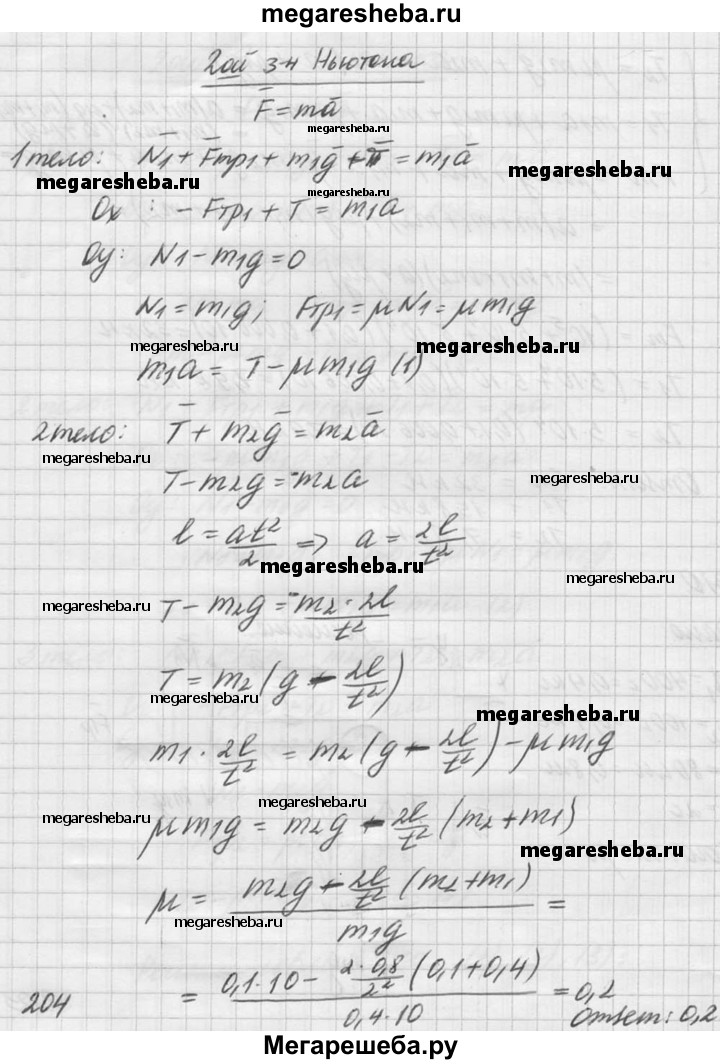 megaresheba.ru
2ой з-н Ньютона
F̅ = ma̅
megaresheba.ru
1 тело: N̅1 + F̅тр1 + m1g̅ + T̅ = m1a̅
megaresheba.ru
megaresheba.ru
megaresheba.ru
Ox : - Fтр1 + T = m1a
Oy: N1 - m1g = 0
N1 = m1g; Fтр1 = μN1 = μm1g
megaresheba.ru
megaresheba.ru
m1a = T - μm1g (1)
2 тело: T̅ + m2g̅ = m2a̅
megaresheba.ru
T - m2g = -m2a
megaresheba.ru
l = at²/2 => a = 2l/t²
megaresheba.ru
megaresheba.ru
T - m2g = -m2·2l/t²
T = m2(g - 2l/t²)
megaresheba.ru
megaresheba.ru
m1 · 2l/t² = m2(g - 2l/t²) - μm1g
megaresheba.ru
μm1g = m2g - 2l/t² (m2 + m1)
megaresheba.ru
μ = (m2g - 2l/t² (m2 + m1))/m1g =
megaresheba.ru
= (0,1·10 - 2·0,8/2² (0,1 + 0,4))/0,4·10 = 0,2
204
Ответ: 0,2
Мегарешеба.ру